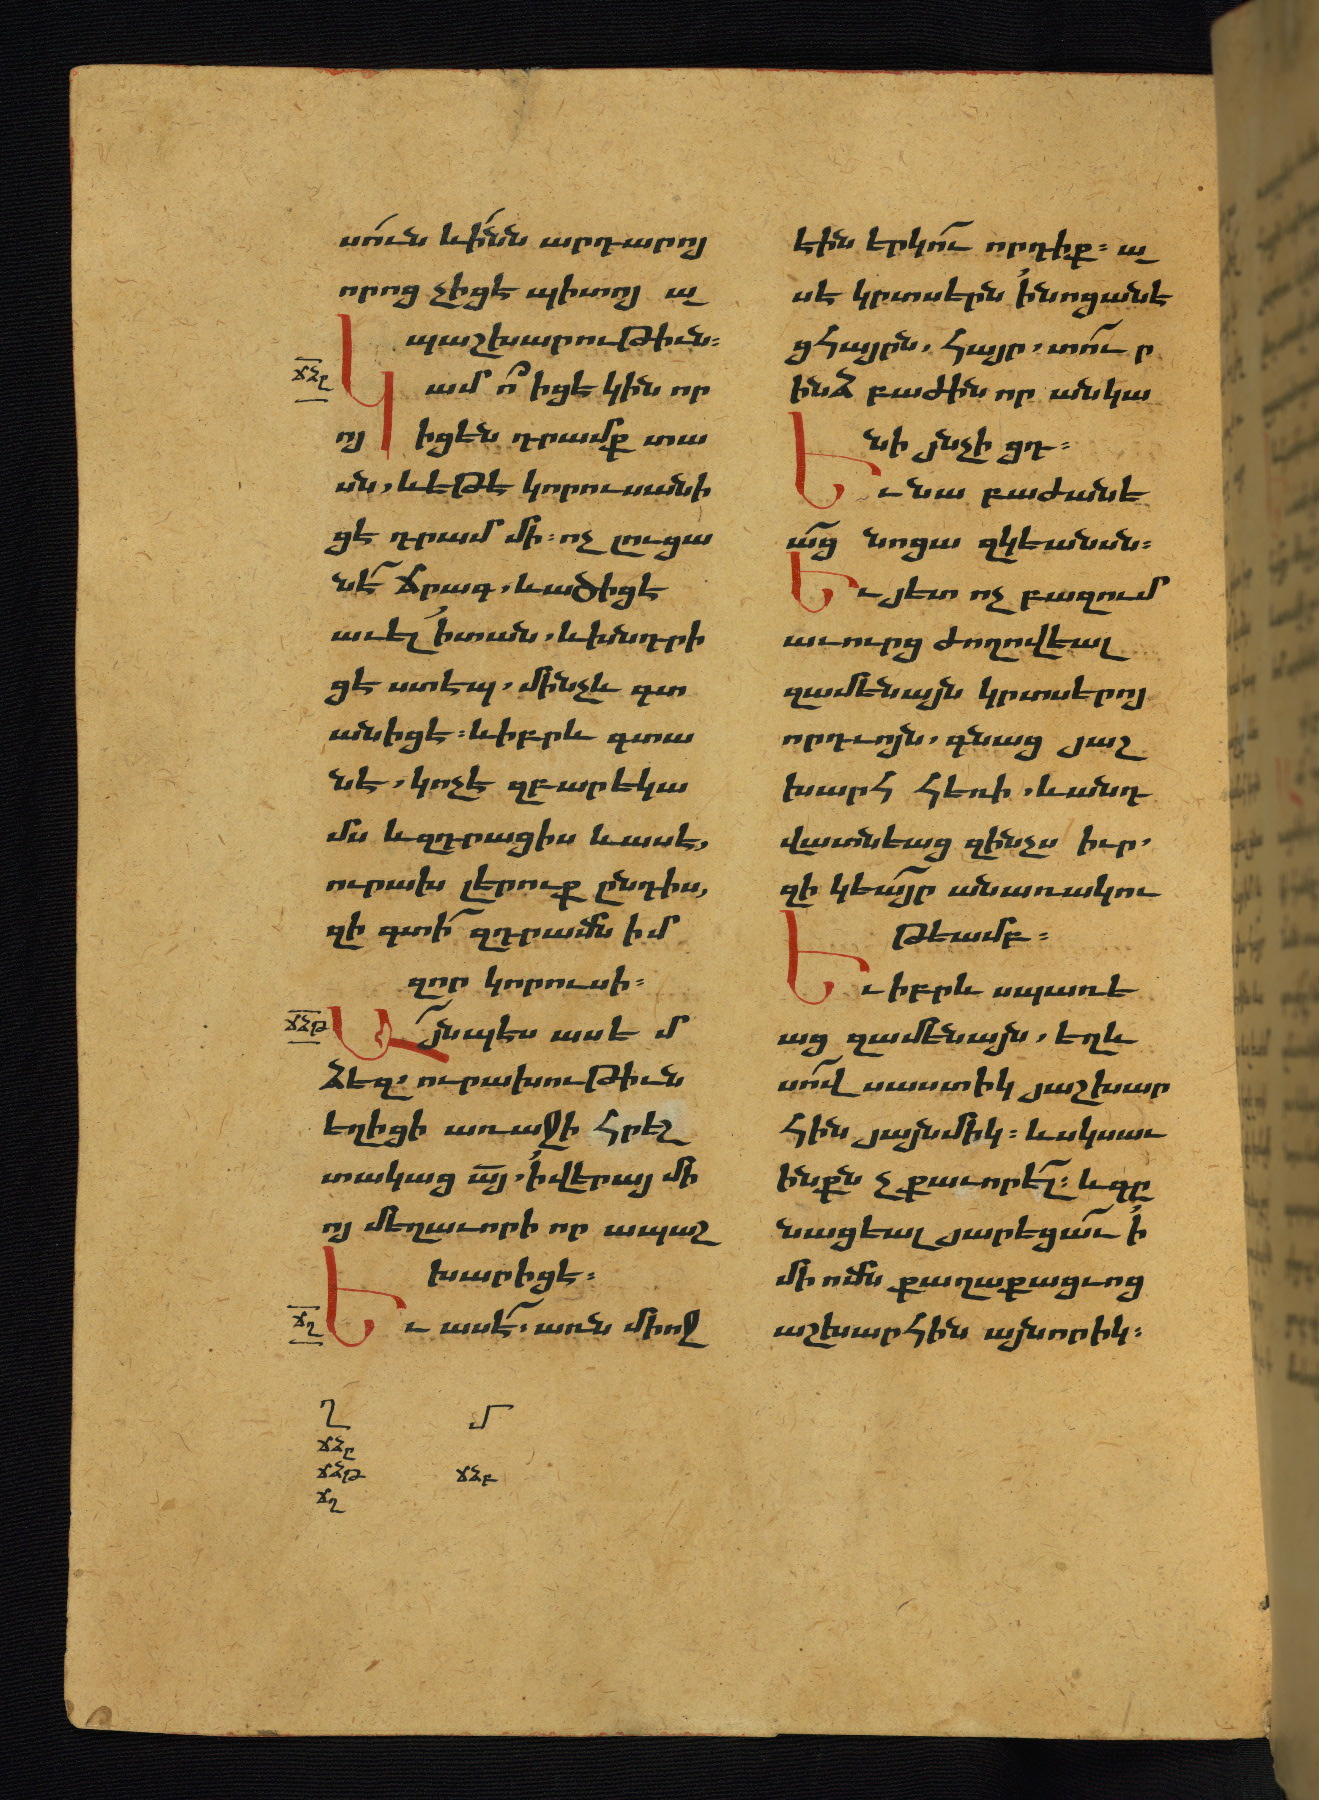 սուն և ինն արդարոյ
որոց չիցէ պիտոյ ա
պաշխարութիւն։
ՃՁԸ
Կամ ո՞ իցէ կին որ
ոյ իցեն դրամք տա
սն, և եթէ կորուսանի
ցէ դրամ մի։ ոչ լուցա
նէ ճրագ, և ածիցէ
աւել ի տան, և խնդրի
ցէ ստէպ, մինչև գտ
անիցէ։ և իբրև գտա
նէ, կոչէ զբարեկա
մս և զդրացիս և ասէ,
ուրախ լերուք ընդիս,
զի գտի զդրամն իմ
զոր կորուսի։
ՃՁԹ
Այնպէս ասե մ
ձեզ, ուրախութիւն
եղիցի առաջի հրեշ
տակաց այ, ի վերայ մի
ոյ մեղաւորի որ ապաշ
խարիցէ։
ՃՂ
Եւ ասէ. առն միոջ
էին երկու որդիք։ ա
սէ կրտսերն ի նոցանէ
ցհայրն, հայր, տու ր
ինձ բաժին որ անկա
նի յնչի ցդ։
Եւ նա բաժանե
աց նոցա զկեանսն։
Եւ յետ ոչ բազում
աւուրց ժողովեալ
զամենայն կրտսերոյ
որդւոյն, գնաց յաշ
խարհ հեռի, և անդ
վատնեաց զինչս իւր,
զի կեայր անառակու
թեամբ։
Եւ իբրև սպառե
աց զամենայն, եղև
սով սաստիկ յաշխար
հին յայնմիկ։ և սկսաւ
ինքն չքաւորել։ և գը
նացեալ յարեցաւ ի
մի ոմն քաղաքացւոց
աշխարհին այնորիկ։
Ղ Մ
ՃՁԸ
ՃՁԹ ՃՁԲ
ՃՂ